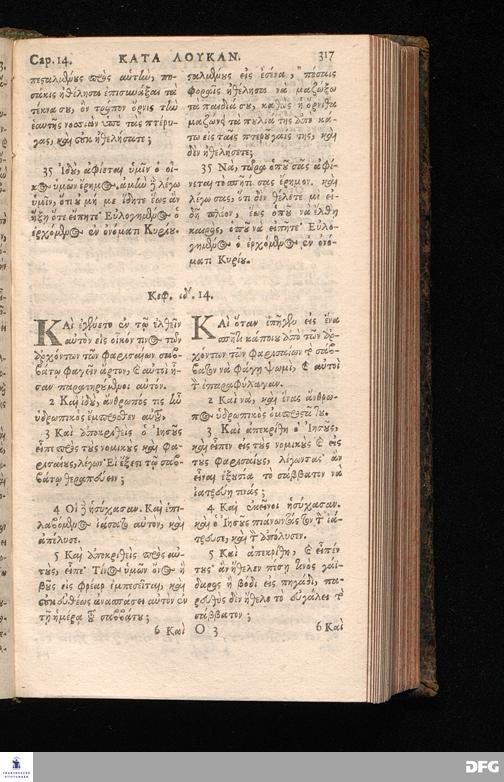 Cap. 14. ΚΑΤΑ ΛΟΥΚΑΝ. 317
πεσταλμένους πρὸς αὐτὴν, πο-
σάκις ἠθέλησα ἐπισυνάξαι τὰ
τέκνα σου, ὃν τρόπον ὄρνις τὴν
ἑαυτῆς νοσσιὰν ὑπὸ τὰς πτέρυ-
γας, καὶ οὐκ ἠθελήσατε;
35 Ἰδοὺ, ἀφίεται ὑμῖν ὁ οἶ-
κος ὑμῶν ἔρημος. ἀμὴν δὲ λέγω
ὑμῖν, ὅτι οὐ μή με ἴδητε ἕως ἂν
ἥξῃ ὅτε εἴπητε· Εὐλογημένος ὁ
ἐρχόμενος ἐν ὀνόματι Κυρίου.
Κεφ. ιδ'. 14.
ΚΑὶ ἐγένετο ἐν τῷ ἐλθεῖν
αὐτὸν εἰς οἶκόν τινος τῶν
ἀρχόντων τῶν Φαρισαίων σαβ-
βάτῳ φαγεῖν ἄρτον, καὶ αὐτοὶ ἦ-
σαν παρατηρούμενοι αὐτόν.
2 Καὶ ἰδοὺ, ἄνθρωπός τις ἦν
ὑδρωπικὸς ἔμπροσθεν αὐτοῦ.
3 Καὶ ἀποκριθεὶς ὁ Ἰησοῦς
εἶπε πρὸς τοὺς νομικοὺς καὶ Φα-
ρισαίους, λέγων· Εἰ ἔξεστι τῷ σαβ-
βάτῳ θεραπεύειν;
4 Οἱ δὲ ἡσύχασαν. Καὶ ἐπι-
λαβόμενος ἰάσατο αὐτὸν, καὶ
ἀπέλυσε.
5 Καὶ ἀποκριθεὶς πρὸς αὐ-
τοὺς, εἶπε· Τίνος ὑμῶν ὄνος ἢ
βοῦς εἰς φρέαρ ἐμπεσεῖται, καὶ
οὐκ εὐθέως ἀνασπάσει αὐτὸν ἐν
τῇ ἡμέρᾳ τοῦ σαββάτου;
6 Καὶ
σταλμένους εἰς ἐσένα, πόσαις
φοραῖς ἠθέλησα νὰ μαζώξω
τὰ παιδία σου, καθὼς ἡ ὄρνιθα
μαζώνει τὰ πυλία της ἀπὸ κά-
τω εἰς ταῖς πτέρυγαίς της, καὶ
δὲν ἠθελήσετε;
35 Νὰ, τώρα ὁποῦ σᾶς ἀφί-
νεται τὸ σπήτι σας ἔρημον. καὶ
λέγω σας, ὅτι δὲν θέλετε μὲ εἰ-
δῆ πλέον, ἕως ὁποῦ νὰ ἔλθῃ
καιρὸς, ὁποῦ νὰ εἰπῆτε· Εὐλο-
γημένος ὁ ἐρχόμενος ἐν ὀνό-
ματι Κυρίου.
ΚΑὶ ὅταν ἐπῆγεν εἰς ἕνα
σπῆτι κάποιου ἀπὸ τῶν ἀρ-
χόντων τῶν Φαρισαίων τὸ σάβ-
βατον νὰ φάγῃ ψωμὶ, καὶ αὐτοὶ
τὸν ἐπαραφύλαγαν.
2 Καὶ νὰ, καὶ ἕνας ἄνθρω-
πος ὑδρωπικὸς ὀμπροστά του.
3 Καὶ ἀπεκρίθη ὁ Ἰησοῦς,
καὶ εἶπεν εἰς τοὺς νομικοὺς καὶ εἰς
τοὺς Φαρισαίους, λέγωντας· ἂν
εἶναι ἐξουσία τὸ σάββατον νὰ
ἰατρεύῃ τινάς;
4 Καὶ ἐκεῖνοι ἡσύχασαν.
καὶ ὁ Ἰησοῦς πιάνωντάς τον τὸν ἰά-
τρευσε, καὶ τὸν ἀπόλυσεν.
5 Καὶ ἀπεκρίθη, καὶ εἶπέν
τους· ἂν ἤθελεν πέσῃ ἕνος γαΐ-
δαρος ἢ βόδι εἰς πηγάδι, πα-
ρευθὺς δὲν ἤθελε τὸ εὐγάλει τὸ
σάββατον;
O 3 6 Καὶ